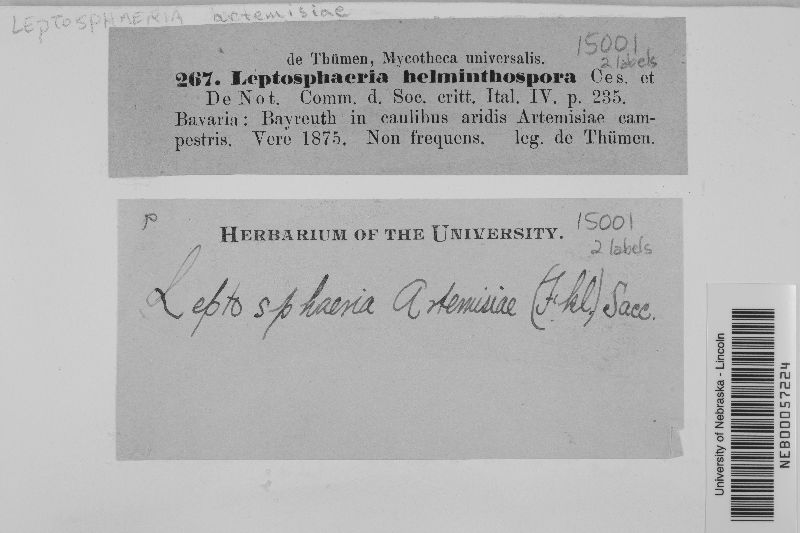 LEPTOSPHAERIA artemisiae
de Thümen, Mycotheca universalis.
15001
2 labels
267. Leptosphaeria helminthospora Ces. et
De Not. Comm. d. Soc. critt. Ital. IV. p. 235.
Bavaria: Bayreuth in caulibus aridis Artemisiae cam-
pestris. Vere 1875. Non frequens. leg. de Thümen.
P
HERBARIUM OF THE UNIVERSITY.
15001
2 labels
Leptosphaeria Artemisiae (Fkl.) Sacc.
University of Nebraska - Lincoln
NEB00057224